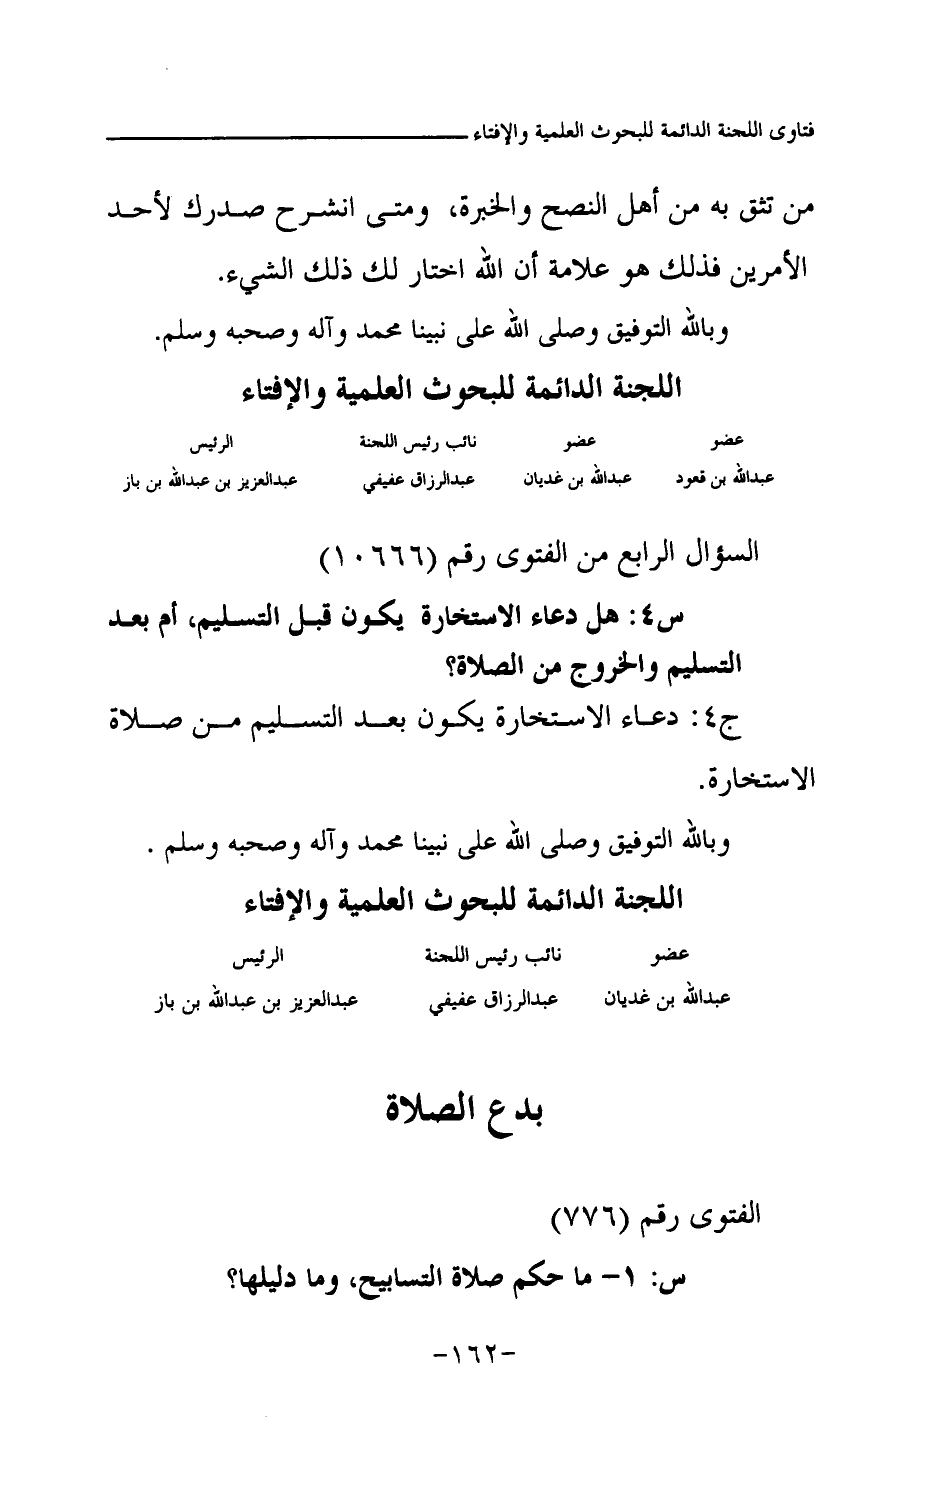 فتاوى اللجنة الدائمة للبحوث العلمية والإفتاء
من تثق به من أهل النصح والخبرة، ومتى انشرح صدرك لأحد
الأمرين فذلك هو علامة أن الله اختار لك ذلك الشيء.
وبالله التوفيق وصلى الله على نبينا محمد وآله وصحبه وسلم.
اللجنة الدائمة للبحوث العلمية والإفتاء
عضو عضو نائب رئيس اللجنة الرئيس
عبدالله بن قعود عبدالله بن غديان عبدالرزاق عفيفي عبدالعزيز بن عبدالله بن باز
السؤال الرابع من الفتوى رقم (١٠٦٦٦)
س٤: هل دعاء الاستخارة يكون قبل التسليم، أم بعد
التسليم والخروج من الصلاة؟
ج٤: دعاء الاستخارة يكون بعد التسليم من صلاة
الاستخارة.
وبالله التوفيق وصلى الله على نبينا محمد وآله وصحبه وسلم .
اللجنة الدائمة للبحوث العلمية والإفتاء
عضو نائب رئيس اللجنة الرئيس
عبدالله بن غديان عبدالرزاق عفيفي عبدالعزيز بن عبدالله بن باز
بدع الصلاة
الفتوى رقم (٧٧٦)
س: ١- ما حكم صلاة التسابيح، وما دليلها؟
-١٦٢-